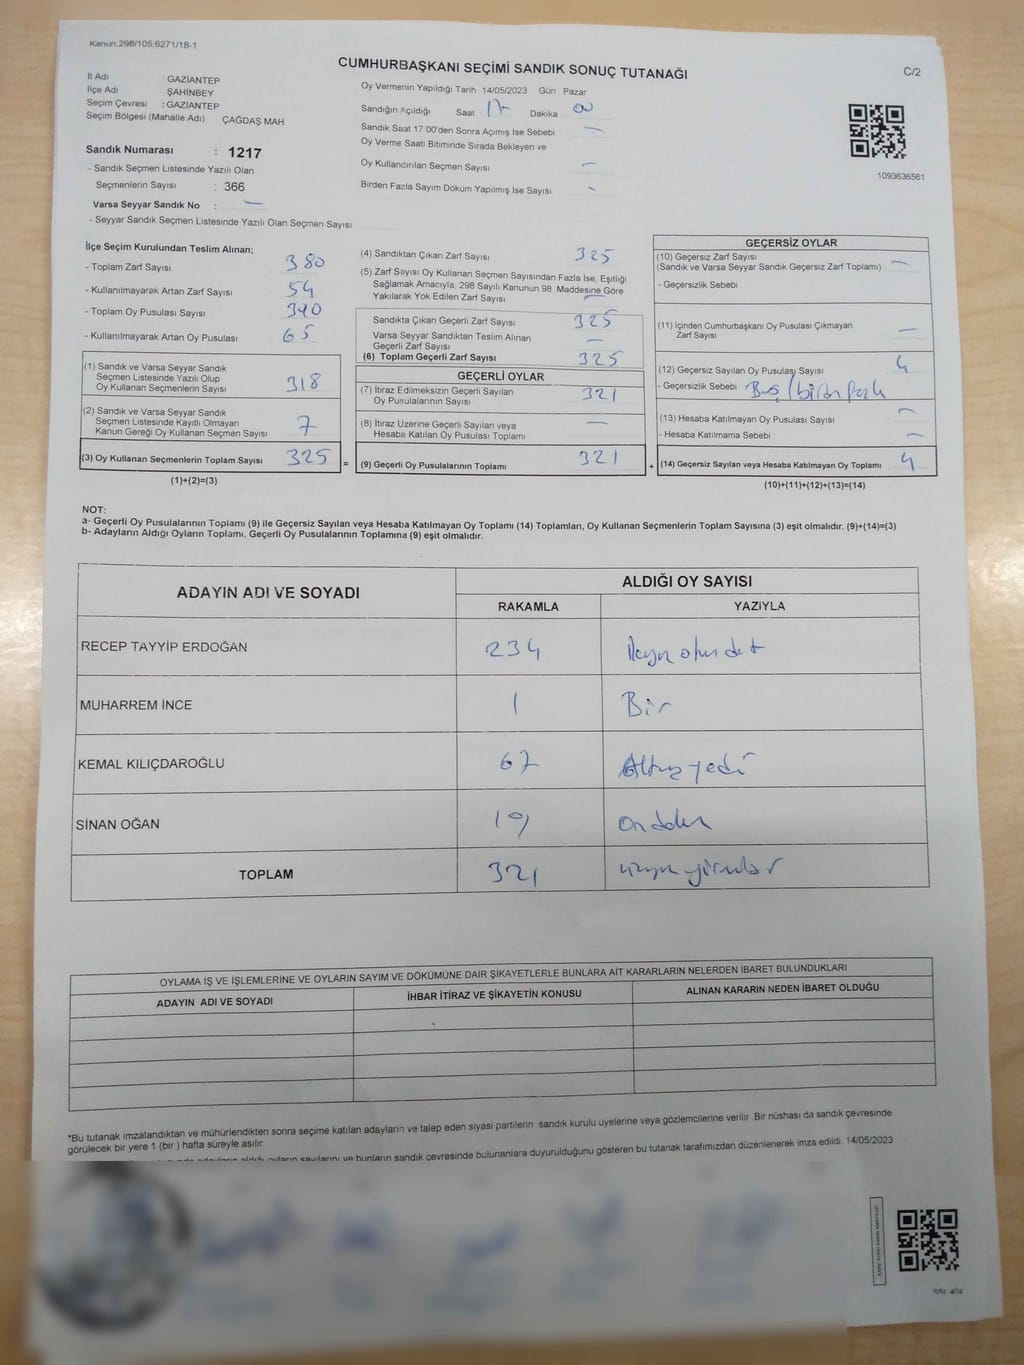 Kanun.298/105,6271/18-1
CUMHURBAŞKANI SEÇİMİ SANDIK SONUÇ TUTANAĞI
C/2
İl Adı GAZİANTEP
İlçe Adı ŞAHİNBEY
Seçim Çevresi : GAZİANTEP
Seçim Bölgesi (Mahalle Adı) ÇAĞDAŞ MAH
Sandık Numarası : 1217
- Sandık Seçmen Listesinde Yazılı Olan
Seçmenlerin Sayısı : 366
Varsa Seyyar Sandık No : —
- Seyyar Sandık Seçmen Listesinde Yazılı Olan Seçmen Sayısı
Oy Vermenin Yapıldığı Tarih 14/05/2023 Gün Pazar
Sandığın Açıldığı Saat 17 Dakika 00
Sandık Saat 17:00'den Sonra Açımış İse Sebebi —
Oy Verme Saati Bitiminde Sırada Bekleyen ve
Oy Kullandırılan Seçmen Sayısı —
Birden Fazla Sayım Döküm Yapılmış İse Sayısı -
1093636561
İlçe Seçim Kurulundan Teslim Alınan;
- Toplam Zarf Sayısı 380
- Kullanılmayarak Artan Zarf Sayısı 54
- Toplam Oy Pusulası Sayısı 390
- Kullanılmayarak Artan Oy Pusulası 65
(1) Sandık ve Varsa Seyyar Sandık
Seçmen Listesinde Yazılı Olup
Oy Kullanan Seçmenlerin Sayısı 318
(2) Sandık ve Varsa Seyyar Sandık
Seçmen Listesinde Kayıtlı Olmayan
Kanun Gereği Oy Kullanan Seçmen Sayısı 7
(3) Oy Kullanan Seçmenlerin Toplam Sayısı 325 =
(1)+(2)=(3)
(4) Sandıktan Çıkan Zarf Sayısı 325
(5) Zarf Sayısı Oy Kullanan Seçmen Sayısından Fazla İse, Eşitliği
Sağlamak Amacıyla, 298 Sayılı Kanunun 98 Maddesine Göre
Yakılarak Yok Edilen Zarf Sayısı —
Sandıkta Çıkan Geçerli Zarf Sayısı 325
Varsa Seyyar Sandıktan Teslim Alınan
Geçerli Zarf Sayısı —
(6) Toplam Geçerli Zarf Sayısı 325
GEÇERLİ OYLAR
(7) İtiraz Edilmeksizin Geçerli Sayılan
Oy Pusulalarının Sayısı 321
(8) İtiraz Üzerine Geçerli Sayılan veya
Hesaba Katılan Oy Pusulası Toplamı —
(9) Geçerli Oy Pusulalarının Toplamı 321 +
GEÇERSİZ OYLAR
(10) Geçersiz Zarf Sayısı
(Sandık ve Varsa Seyyar Sandık Geçersiz Zarf Toplamı) —
- Geçersizlik Sebebi
(11) İçinden Cumhurbaşkanı Oy Pusulası Çıkmayan
Zarf Sayısı —
(12) Geçersiz Sayılan Oy Pusulası Sayısı 4
- Geçersizlik Sebebi Boş/birden fazla
(13) Hesaba Katılmayan Oy Pusulası Sayısı —
- Hesaba Katılmama Sebebi —
(14) Geçersiz Sayılan veya Hesaba Katılmayan Oy Toplamı 4
(10)+(11)+(12)+(13)=(14)
NOT:
a- Geçerli Oy Pusulalarının Toplamı (9) ile Geçersiz Sayılan veya Hesaba Katılmayan Oy Toplamı (14) Toplamları, Oy Kullanan Seçmenlerin Toplam Sayısına (3) eşit olmalıdır. (9)+(14)=(3)
b- Adayların Aldığı Oyların Toplamı, Geçerli Oy Pusulalarının Toplamına (9) eşit olmalıdır.
ADAYIN ADI VE SOYADI
ALDIĞI OY SAYISI
RAKAMLA YAZIYLA
RECEP TAYYİP ERDOĞAN 234
MUHARREM İNCE 1 Bir
KEMAL KILIÇDAROĞLU 67 Altmışyedi
SİNAN OĞAN 19 On dokuz
TOPLAM 321
OYLAMA İŞ VE İŞLEMLERİNE VE OYLARIN SAYIM VE DÖKÜMÜNE DAİR ŞİKAYETLERLE BUNLARA AİT KARARLARIN NELERDEN İBARET BULUNDUKLARI
ADAYIN ADI VE SOYADI İHBAR İTİRAZ VE ŞİKAYETİN KONUSU ALINAN KARARIN NEDEN İBARET OLDUĞU
*Bu tutanak imzalandıktan ve mühürlendikten sonra seçime katılan adayların ve talep eden siyasi partilerin sandık kurulu üyelerine veya gözlemcilerine verilir. Bir nüshası da sandık çevresinde
görülecek bir yere 1 (bir) hafta süreyle asılır.
adayların aldığı oyların sayılarını ve bunların sandık çevresinde bulunanlara duyurulduğunu gösteren bu tutanak tarafımızdan düzenlenerek imza edildi. 14/05/2023